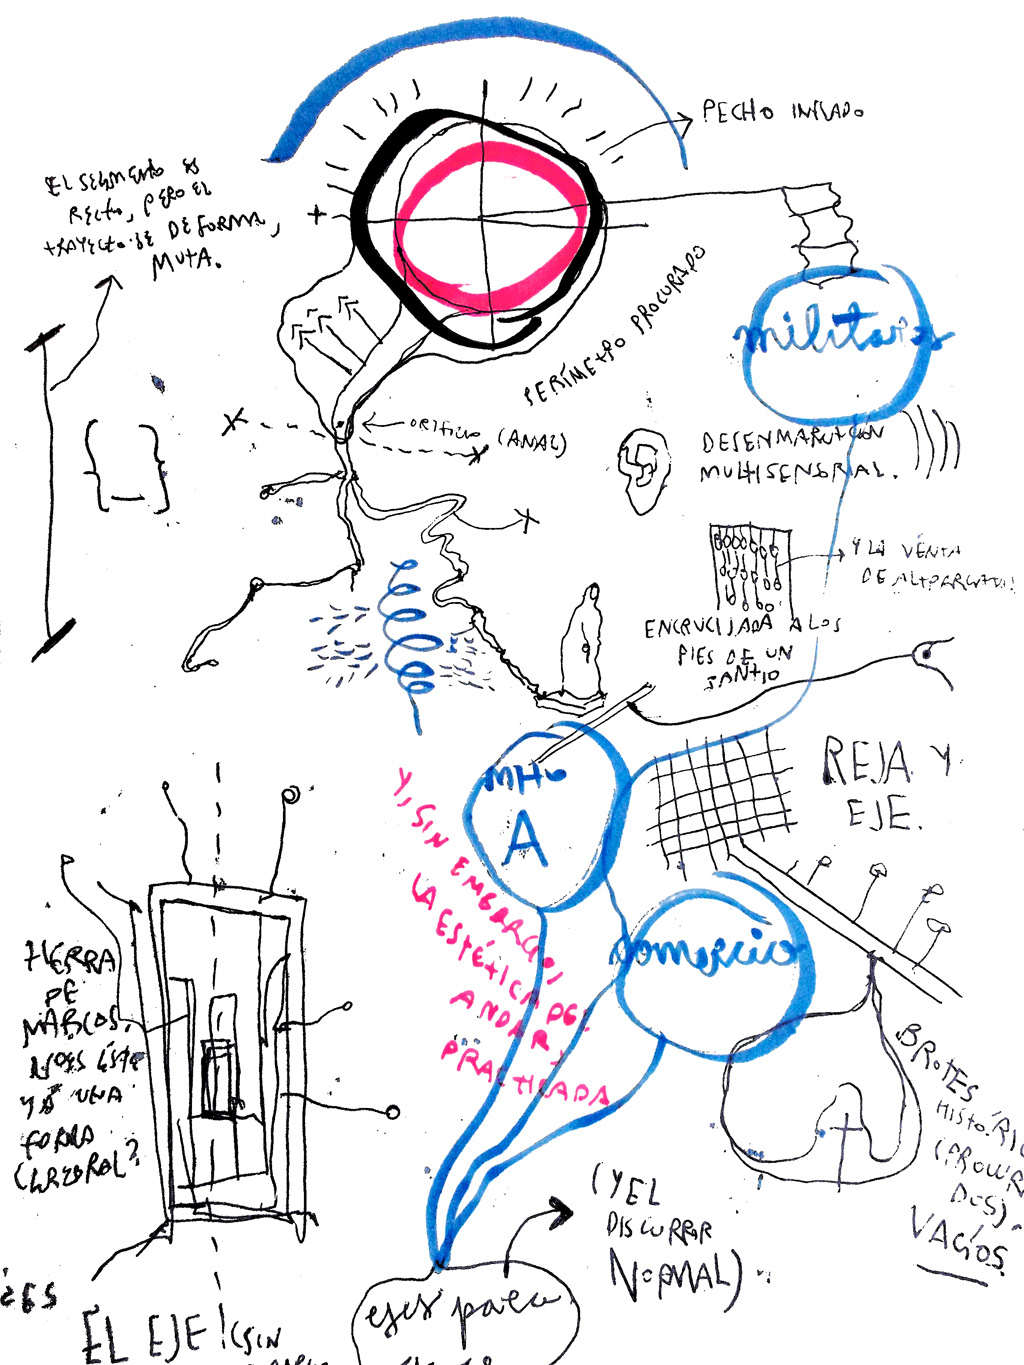 PECHO INFLADO
EL SEGMENTO ES
RECTO, PERO EL
TRAYECTO SE DEFORMA,
MUTA.
PERÍMETRO PROCURADO
militares
ORIFICIO (ANAL)
DESENMARCACION
MULTISENSORIAL.
Y LA VENTA
DE ALPARGATAS!
ENCRUCIJADA A LOS
PIES DE UN
SANTIO
REJA Y
EJE.
A
Y, SIN EMBARGO,
LA ESTÉTICA DEL
ANDAR,
PRACTICADA
comercio
TIERRA
DE
MARCOS.
NO ES ÉSTE
YA UNA
FORMA
CEREBRAL?
BROTES
HISTÓRIC
(PROCURA
DOS)
VACÍOS.
(Y EL
DISCURRIR
NORMAL)
EL EJE! (SIN
ejes para